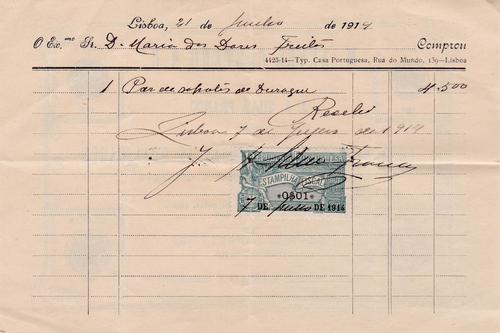 Lisboa, 21 de Junho de 1914
O Ex.mo Sr. D. Maria das Dores Freitas Comprou
4425-14—Typ. Casa Portuguesa, Rua do Mundo, 139—Lisboa
1 Par de sapatos de Duraque 4.500
Recebi
Lisboa 7 de de 1914
J. A.
ESTAMPILHA FISCAL
*0$01*
7 DE DE 1914